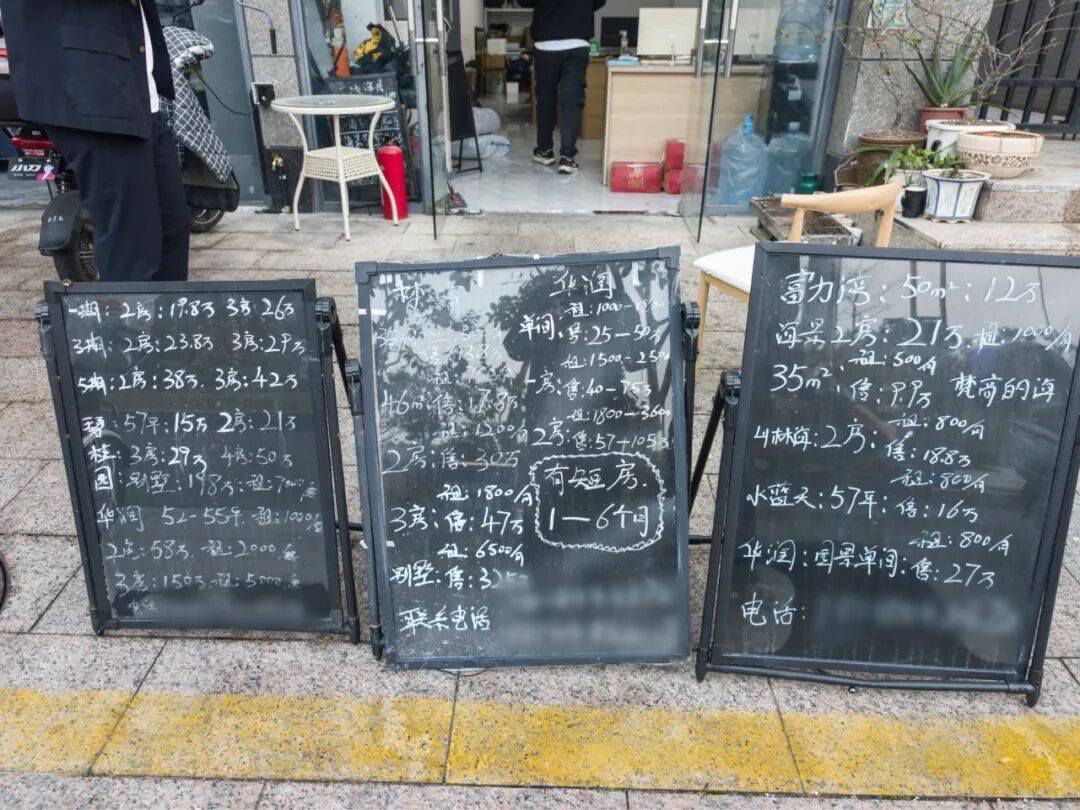 一期：2房：19.8万 3房26万
3期：2房：23.8万 3房：29万
5期：2房：38万. 3房：42万
碧：57坪：15万 2房：21万
桂：3房：29万 4房：50万
园：别墅：198万：租：7000
华润 52-55坪 租：1000
2房：58万 租：2000
3房：150万 租：5000
电话
46m²：售：17.8万
租：1200/月
2房：售：30万
租：1800/月
3房：售：47万
租：6500/月
别墅：售：
联系电话
华润
租：1000-1800
单间：售：25-50万
租：1500-250
一房：售：40-75万
租：1800-3600
2房：售：57-105万
有短房.
1-6个月
富力湾：50m²：12万
海景2房：21万. 租：1000/月
租：500/月
35m²，售：9.9万 梵高的海
租：800/月
山林海：2房：售：18.8万
租：800/月
水蓝天：57坪：售：16万
租：800/月
华润：园景单间：售：27万
电话：
小刀